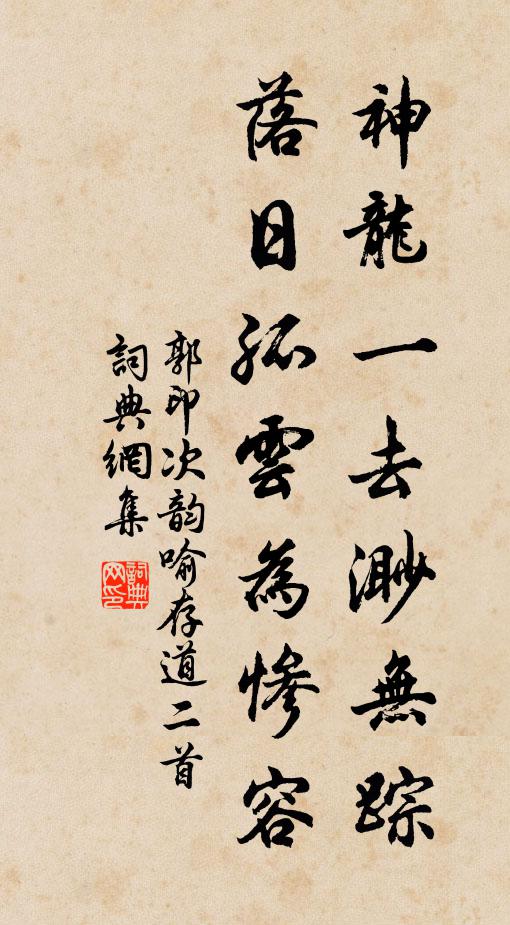 神龍一去渺無踪
落日孤雲為慘容
郭印次韵喻存道二首
詞典網集
詞典
网印